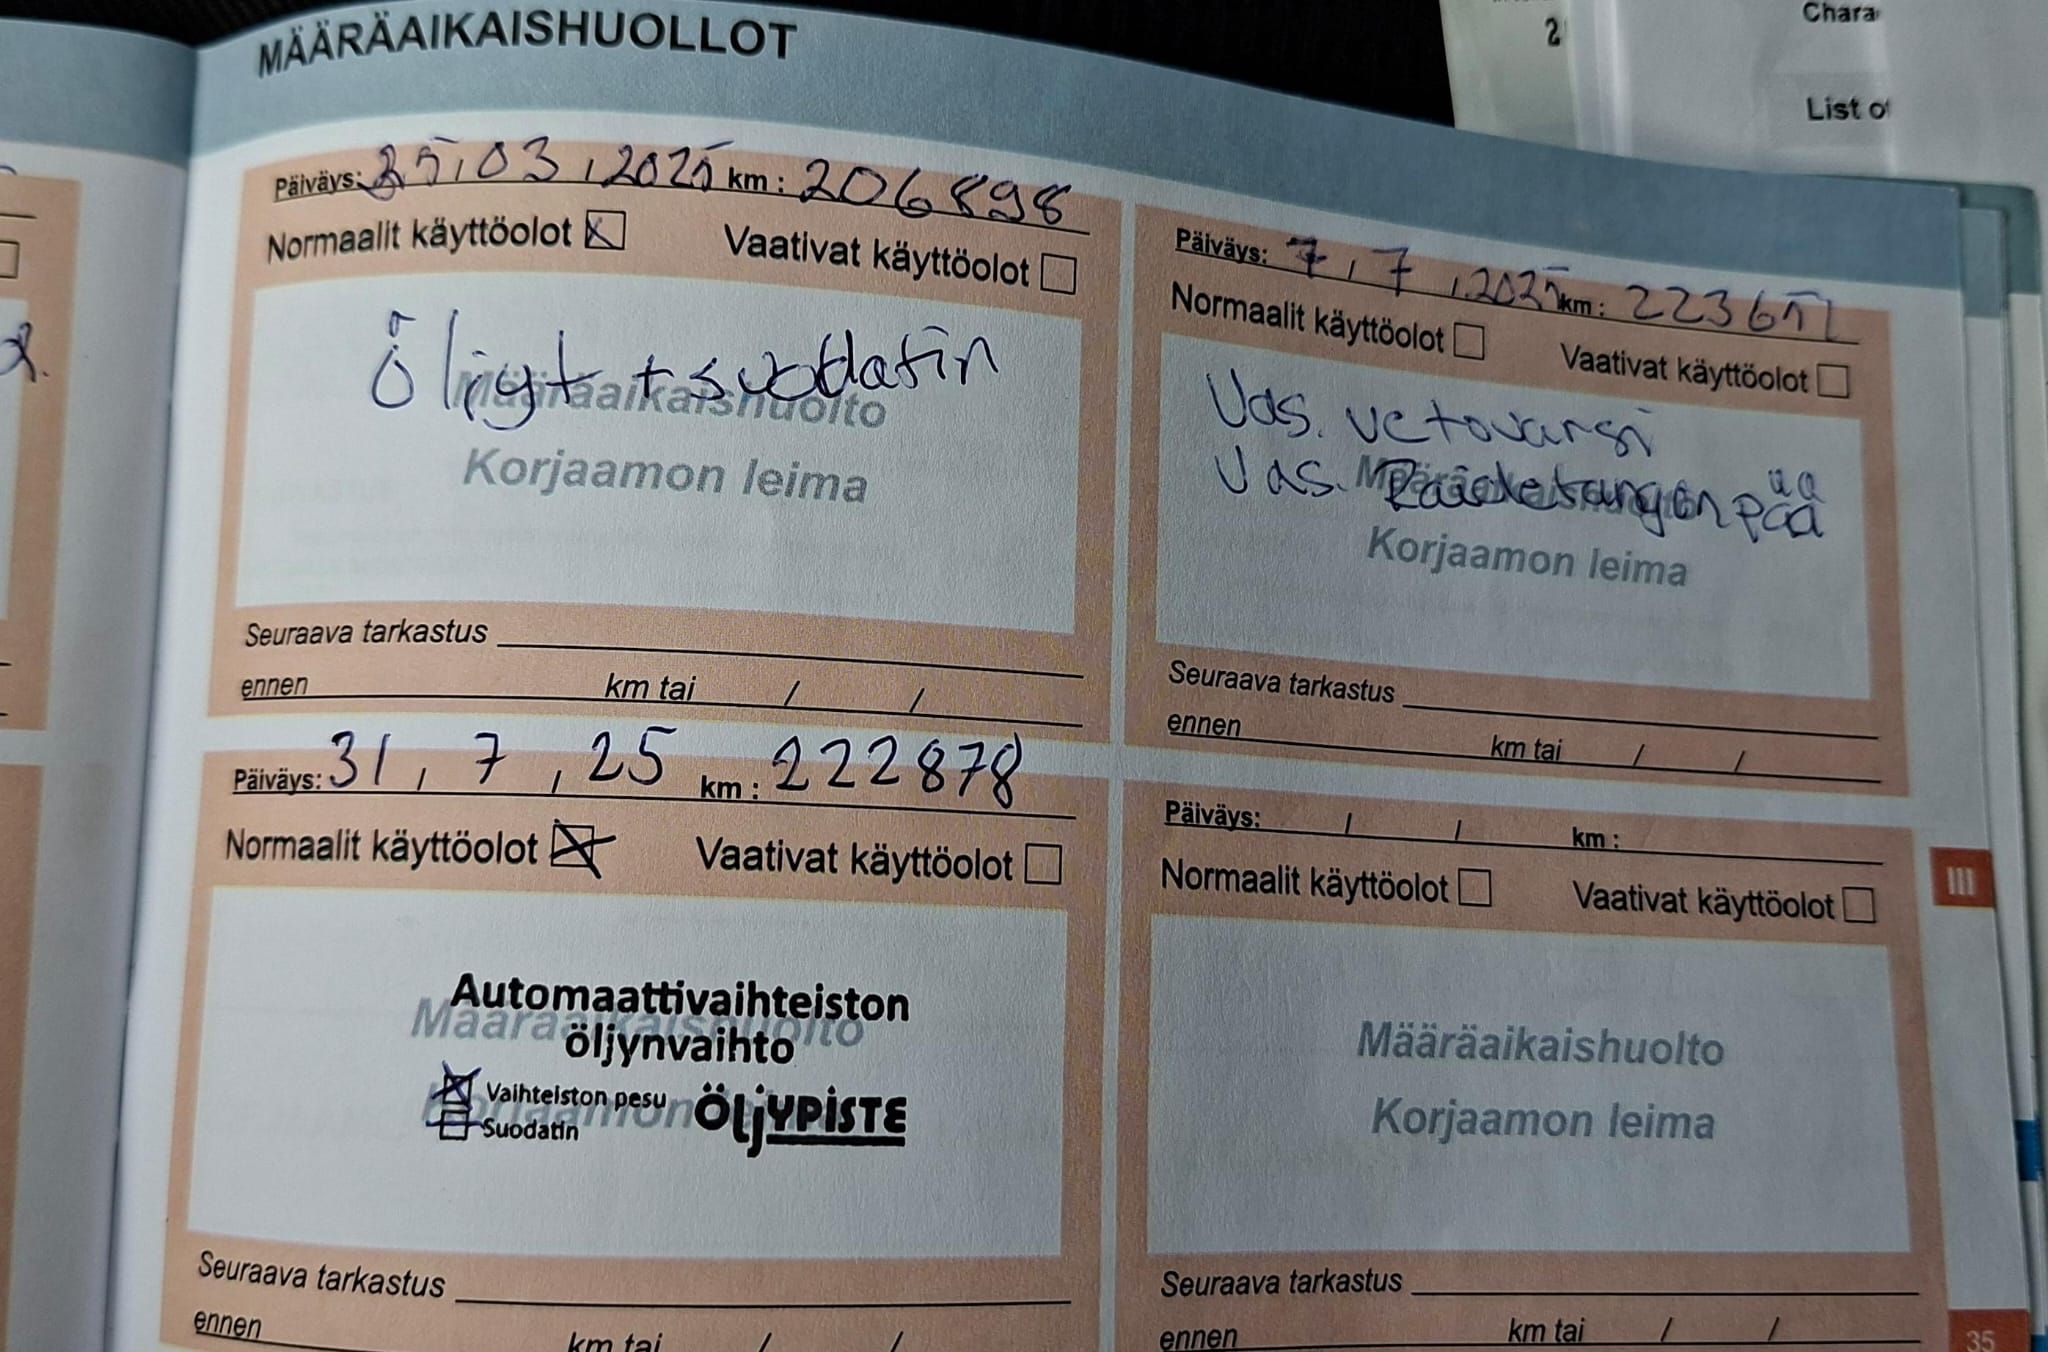 MÄÄRÄAIKAISHUOLLOT
Päiväys: 25.03.2025 km: 206898
Normaalit käyttöolot Vaativat käyttöolot
Öljyt + suodatin
Määräaikaishuolto
Korjaamon leima
Seuraava tarkastus
ennen km tai / /
Päiväys: 7.7.2025 km: 22365
Normaalit käyttöolot Vaativat käyttöolot
Vas. vetovarsi
Vas. Raidetangon pää
Määräaikaishuolto
Korjaamon leima
Seuraava tarkastus
ennen km tai / /
Päiväys: 31, 7, 25 km: 222878
Normaalit käyttöolot Vaativat käyttöolot
Automaattivaihteiston
öljynvaihto
Vaihteiston pesu
Suodatin
ÖLJYPISTE
Määräaikaishuolto
Korjaamon leima
Seuraava tarkastus
ennen km tai / /
Päiväys: / / km:
Normaalit käyttöolot Vaativat käyttöolot
Määräaikaishuolto
Korjaamon leima
Seuraava tarkastus
ennen km tai / /
III
35
Chara
List of